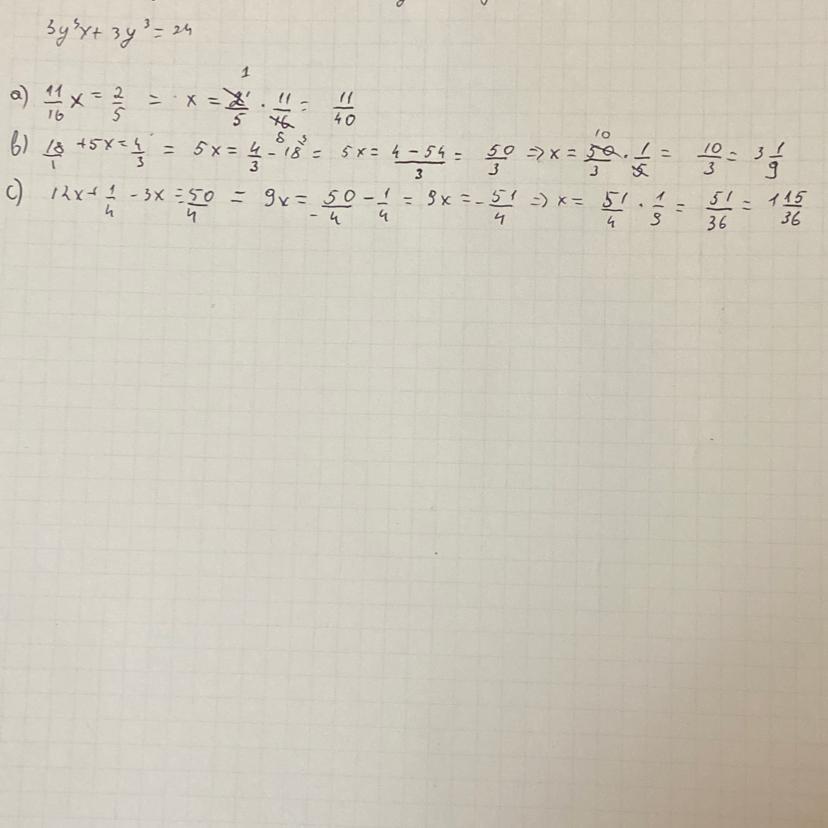 3y³x + 3y³ = 24
a) 11/16 x = 2/5 = x = 2/5 · 11/16 = 11/40
b) 18/1 + 5x = 4/3 = 5x = 4/3 - 18 = 5x = (4 - 54)/3 = 50/3 => x = 50/3 · 1/5 = 10/3 = 3 1/9
c) 12x + 1/4 - 3x = 50/4 = 9x = -50/4 - 1/4 = 9x = -51/4 => x = 51/4 · 1/9 = 51/36 = 1 15/36